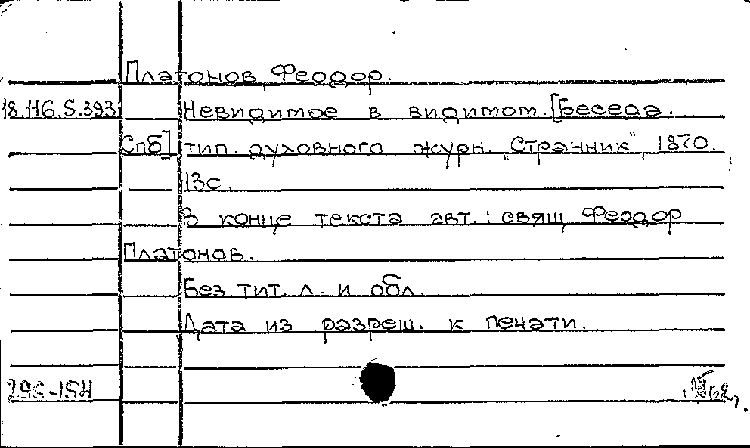 Платонов, Феодор.
18.116.5.393 Невидимое в видимом. [Беседа.
Спб] тип. духовного журн. "Странник", 1870.
13с.
В конце текста авт.: свящ. Феодор
Платонов.
Без тит. л. и обл.
Дата из разреш. к печати.